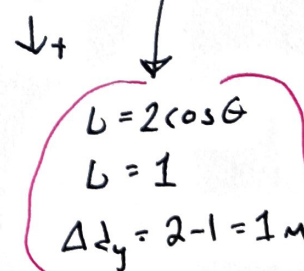 ↓+
L = 2cosθ
L = 1
Δdy = 2-1 = 1 m